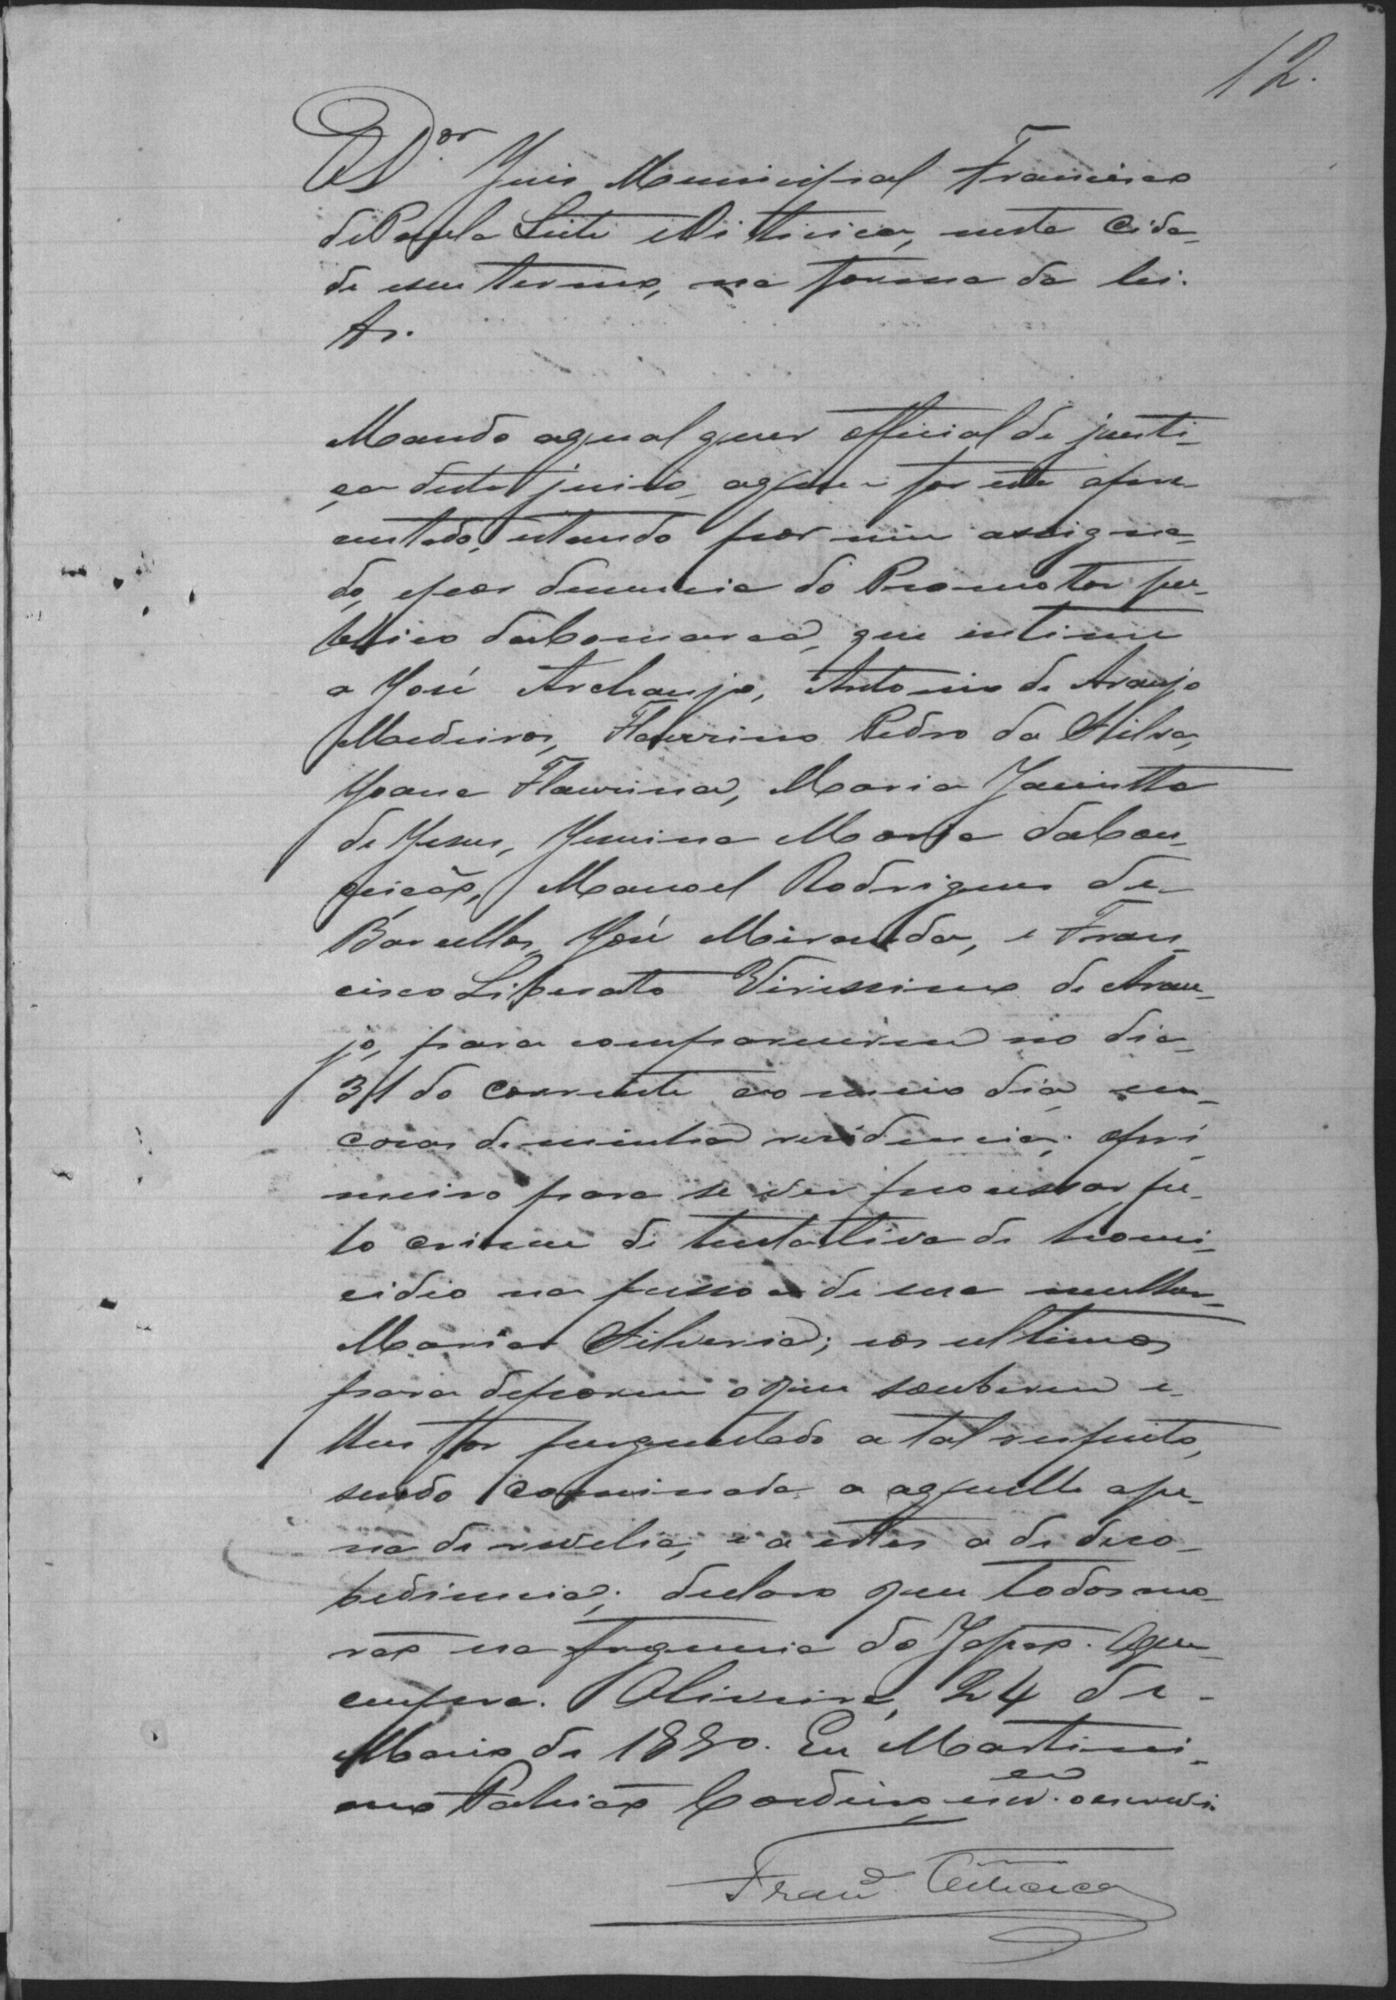 12.
O D.or Juis Municipal Francisco
de Paula Leite e Oiticica, nesta Cida-
de e seu termo, na forma da lei.
Mando a qual quer official de justi-
ça deste juiso, a quem for este apre-
sentado, estando por mim assigna-
do, e por denuncia do Promotor pu-
blico da Comarca, que intime
a José Archanjo, Antonio de Araujo
Medeiros, Flaurino Pedro da Silva,
Joana Flaurina, Maria Jacintha
de Jesus, Maria da Con-
ceicão, Manoel Rodrigues de
Barcellos, José Miranda, e Fran-
cisco Liberato Virissimo de Arau-
jo, para comparecerem no dia
31 do corrente ao meio dia em
casa de minha residencia; o pri-
meiro para se ver processar pe-
lo crime de tentativa de homi-
cidio na pessoa de sua mulher
Maria Silveria; e os ultimos
para deporem o que souberem e
lhes for perguntado a tal respeito,
sendo comminada a aquelle a pe-
na de revelia, e a estes a de deso-
bediencia; declaro que todos mo-
rão na freguesia do Japão. O que
cumpra. Oliveira, 24 de
Maio de 1890. Eu Martini-
ano Cordeiro, escr.am o escrevi.
Fran.co Oiticica